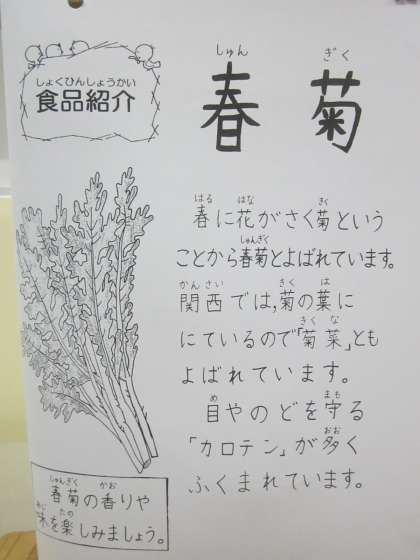 しょくひんしょうかい
食品紹介
しゅん ぎく
春菊
はる はな きく
春に花がさく菊という
しゅんぎく
ことから春菊とよばれています。
かんさい きく は
関西では、菊の葉に
きくな
にているので「菊菜」とも
よばれています。
め まも
目やのどを守る
おお
「カロテン」が多く
ふくまれています。
しゅんぎく かお
春菊の香りや
あじ たの
味を楽しみましょう。